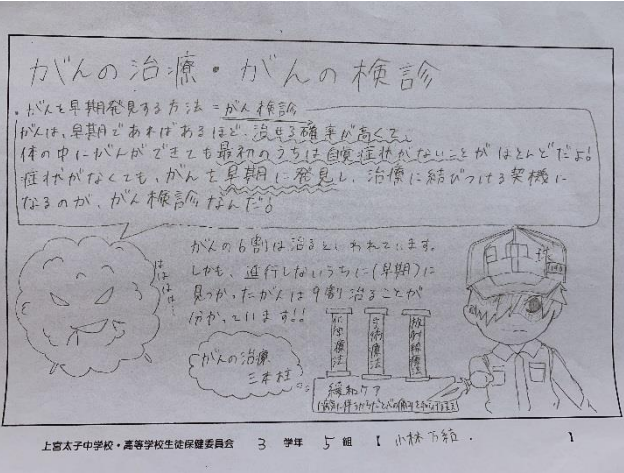 がんの治療・がんの検診
・がんを早期発見する方法=がん検診
がんは、早期であればあるほど、治せる確率が高くて、
体の中にがんができても最初のうちは自覚症状がないことがほとんどだよ!
症状がなくても、がんを早期に発見し、治療に結びつける契機に
なるのが、がん検診なんだ!
はははは…
がんの6割は治るといわれています。
しかも、進行しないうちに(早期)に
見つかったがんは9割治ることが
分かっています!!
がんの治療
三本柱
手術療法
放射線療法
緩和ケア
球
上宮太子中学校・高等学校生徒保健委員会 3 学年 5 組 【 小林 】